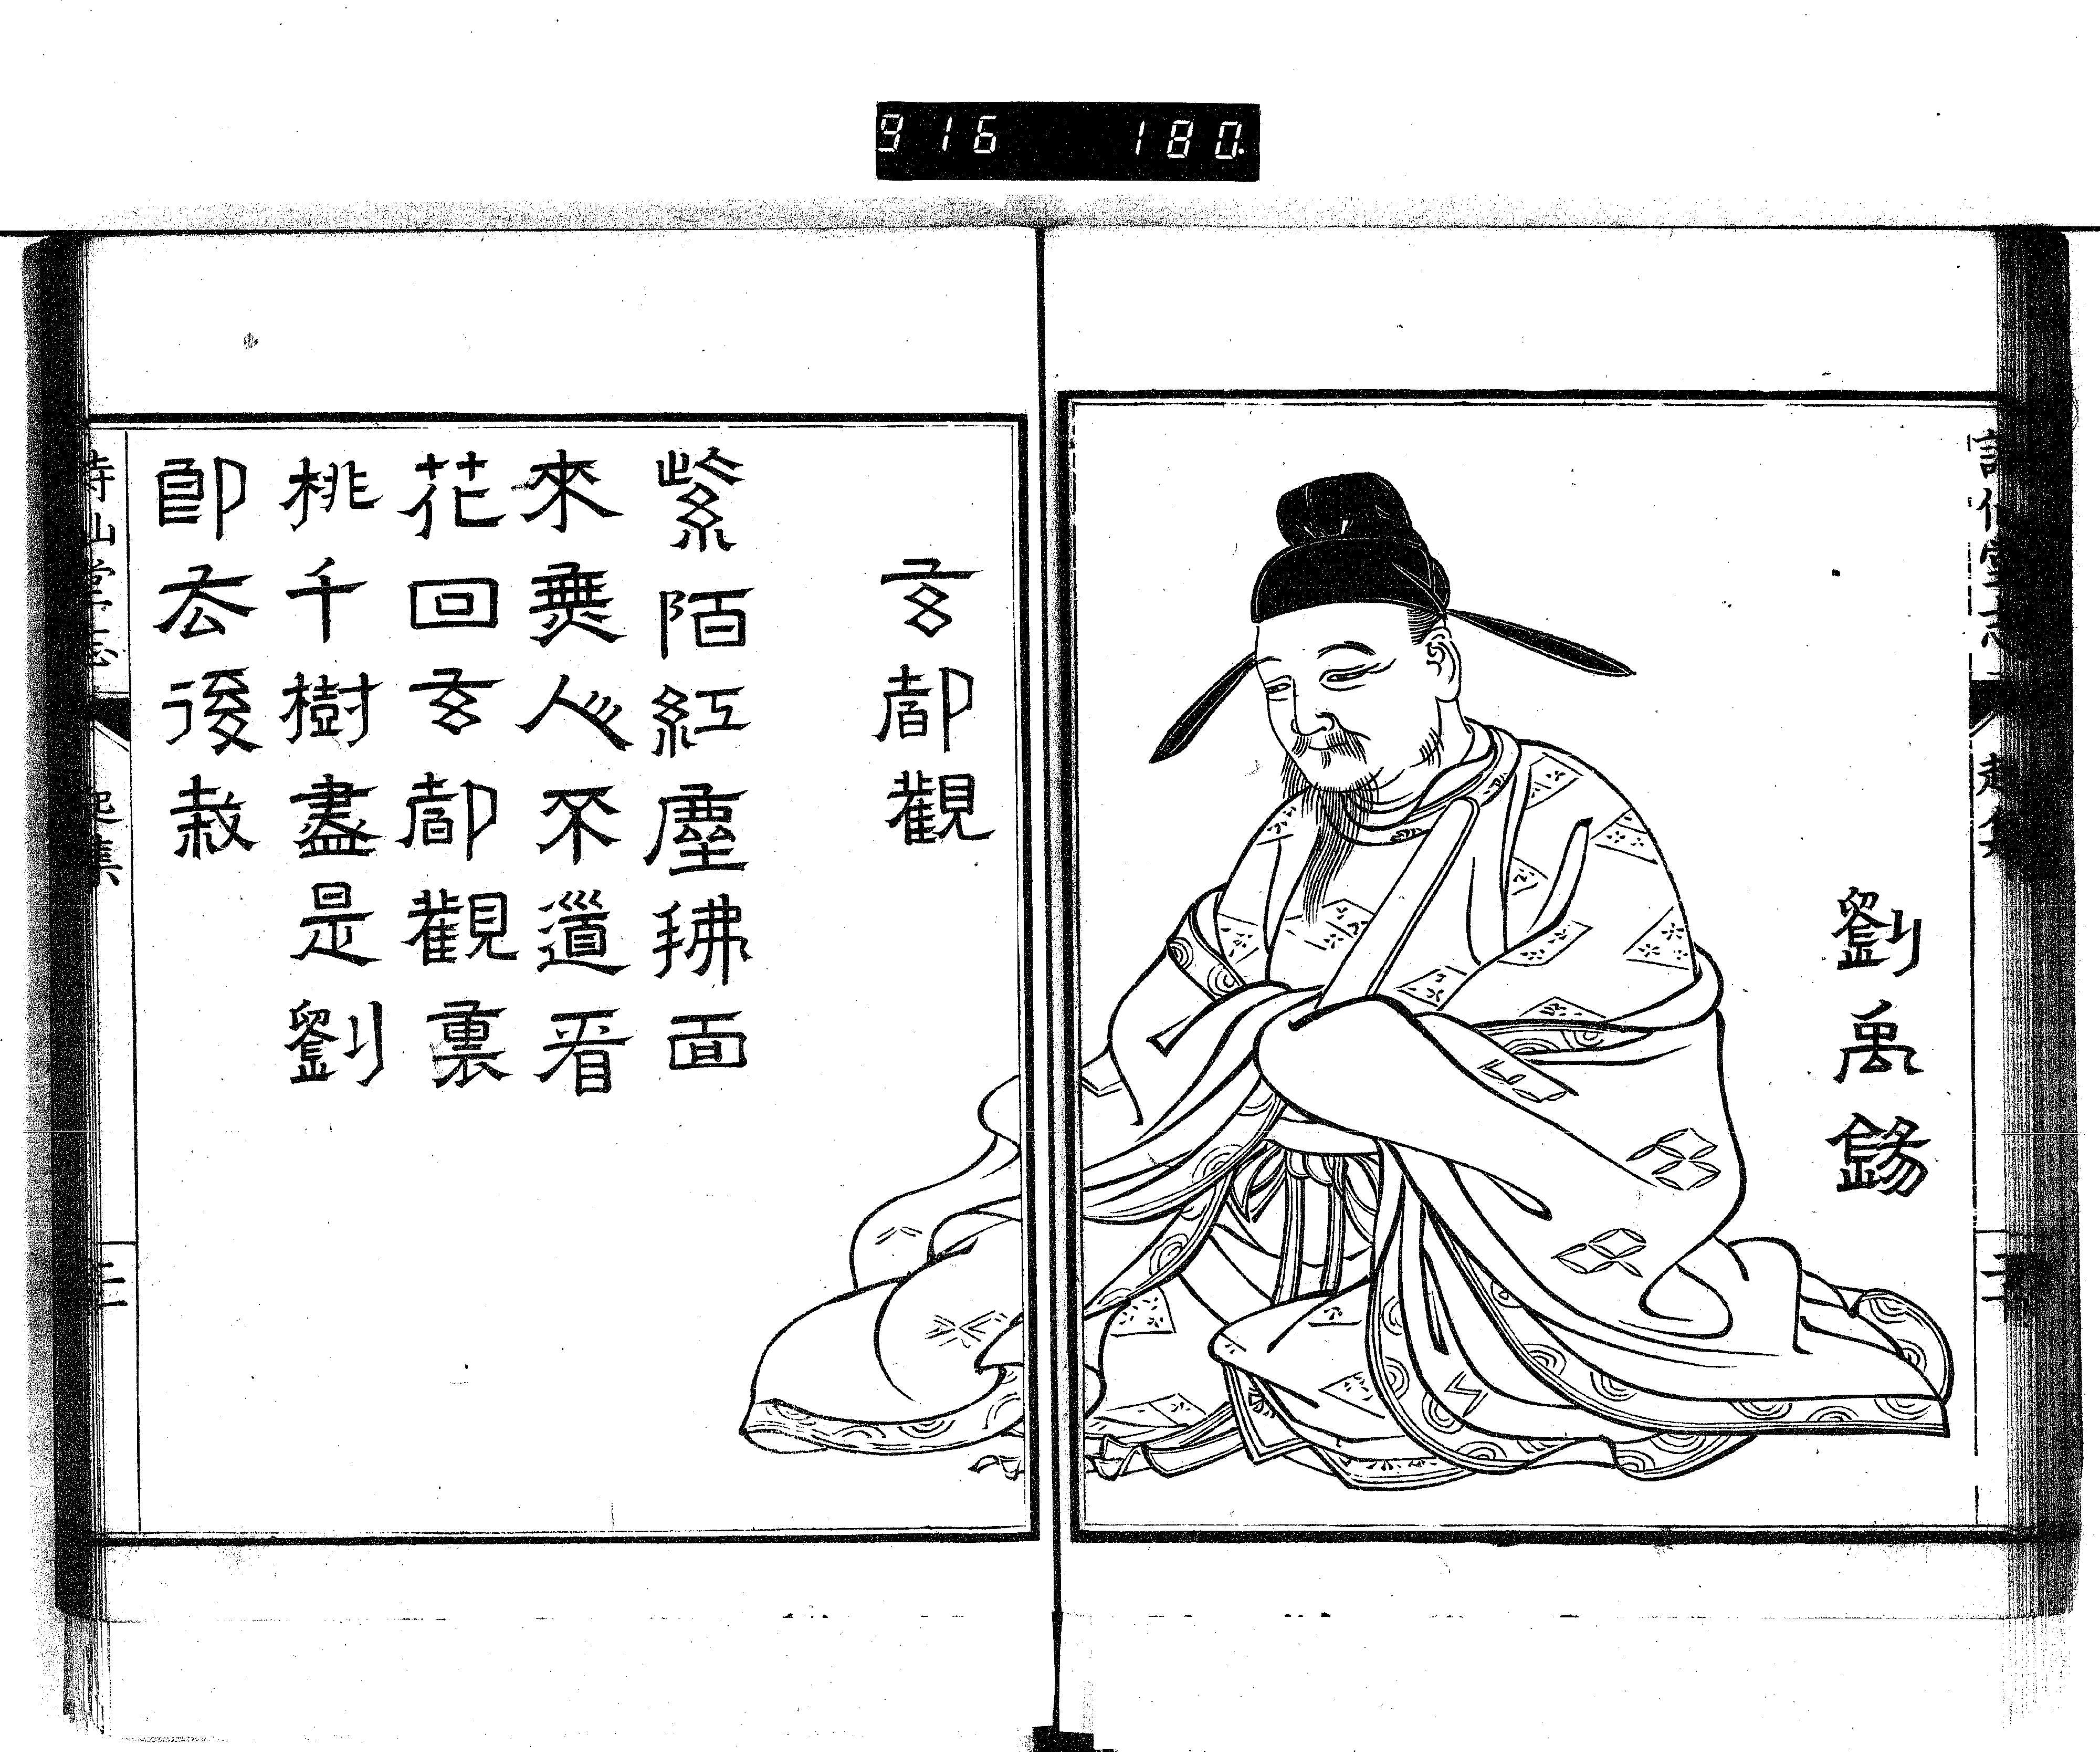 916 180
劉禹錫
玄都觀
紫陌紅塵拂面
來無人不道看
花回玄都觀裏
桃千樹盡是劉
郎去後栽
詩仙堂志